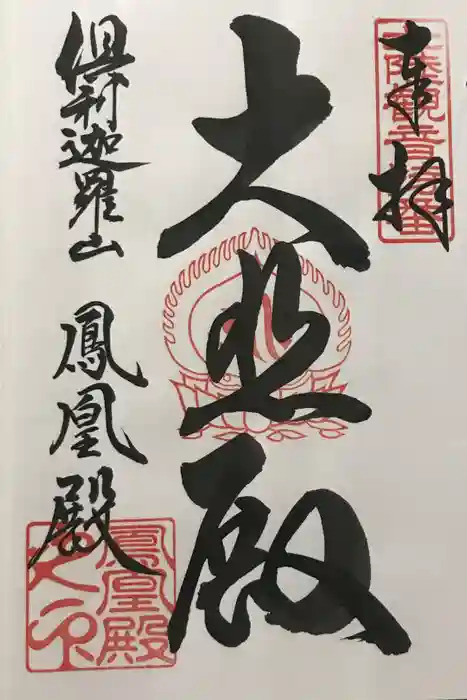 奉拝
大悲殿
倶利迦羅山 鳳凰殿
鳳凰殿